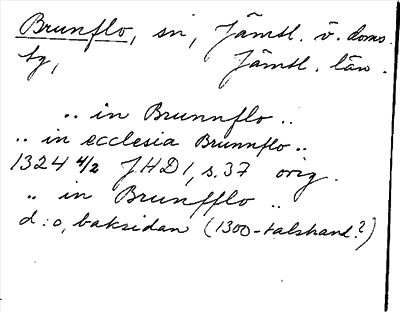 Brunflo, sn, Jämtl. v. doms.
tg, Jämtl. län.
.. in Brunnflo ..
.. in ecclesia Brunnflo ..
1324 4/2 JHD 1, s. 37 orig.
.. in Brunfflo ..
d:o, baksidan (1300-talshand?)